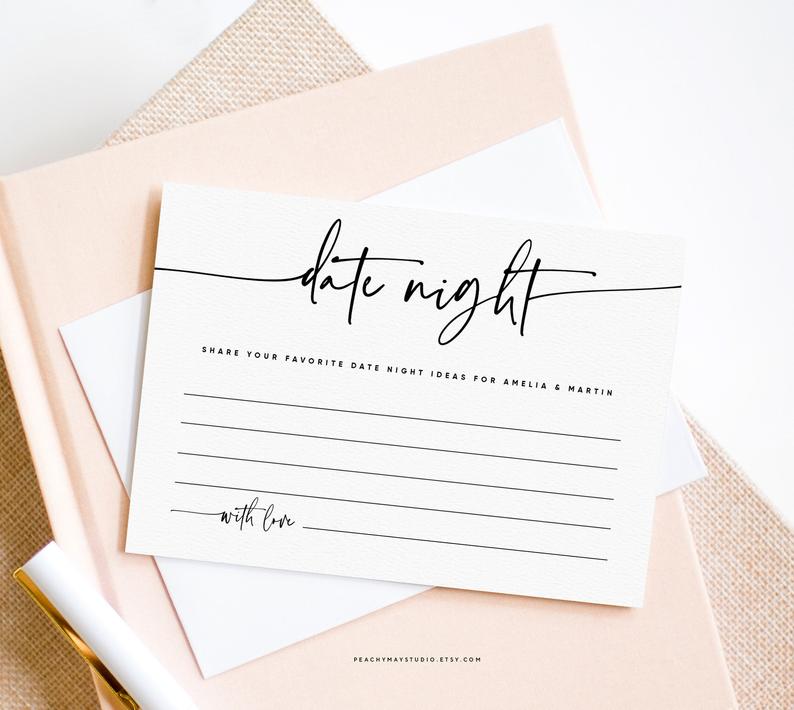 date night
SHARE YOUR FAVORITE DATE NIGHT IDEAS FOR AMELIA & MARTIN
with love
PEACHYMAYSTUDIO.ETSY.COM